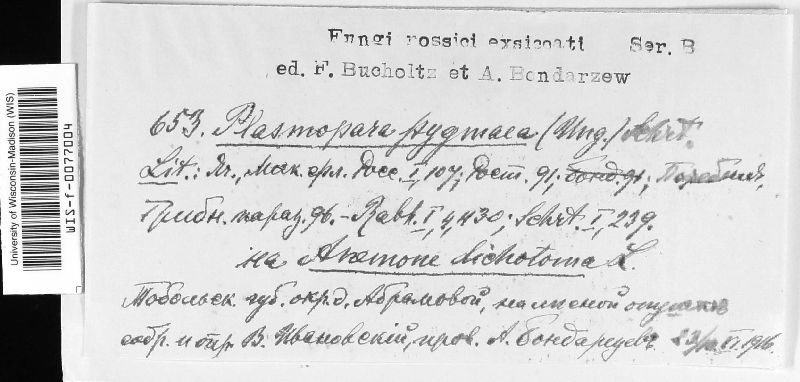 University of Wisconsin-Madison (WIS)
WIS-f-0077004
Fungi rossici exsiccati Ser. B
ed. F. Bucholtz et A. Bondarzew
653. Plasmopara pygmaea (Ung.) Schrt.
Lit.: Яч., Мик. фл. Росс. I, 107; Рост. 91; Бонд. 91;
Грибн. параз. 96. - Rabh. I, 4, 430; Schrt. I, 239.
на Anemone dichotoma L.
Тобольск. губ. окр. д. Абрамовой, на лесной опушке
собр. и опр. В. Ивановскій, пров. А. Бондарцевъ 23/VI 1916.